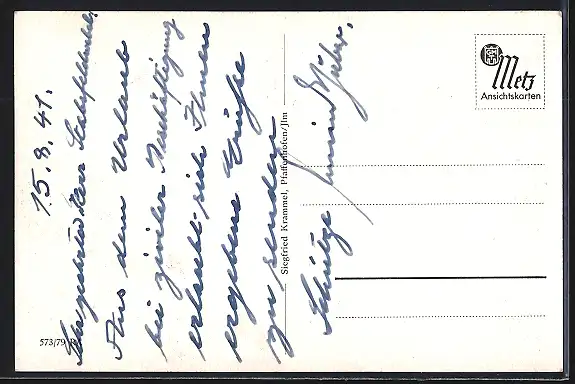 15.8.41.
Sehr geehrter Herr
Aus dem Urlaub
bei ziviler Beschäftigung
erlaubt sich Ihnen
ergebene Grüße
zu senden
Schütze
Siegfried Krammel, Pfaffenhofen/Jlm
Metz
Ansichtskarten
573/79